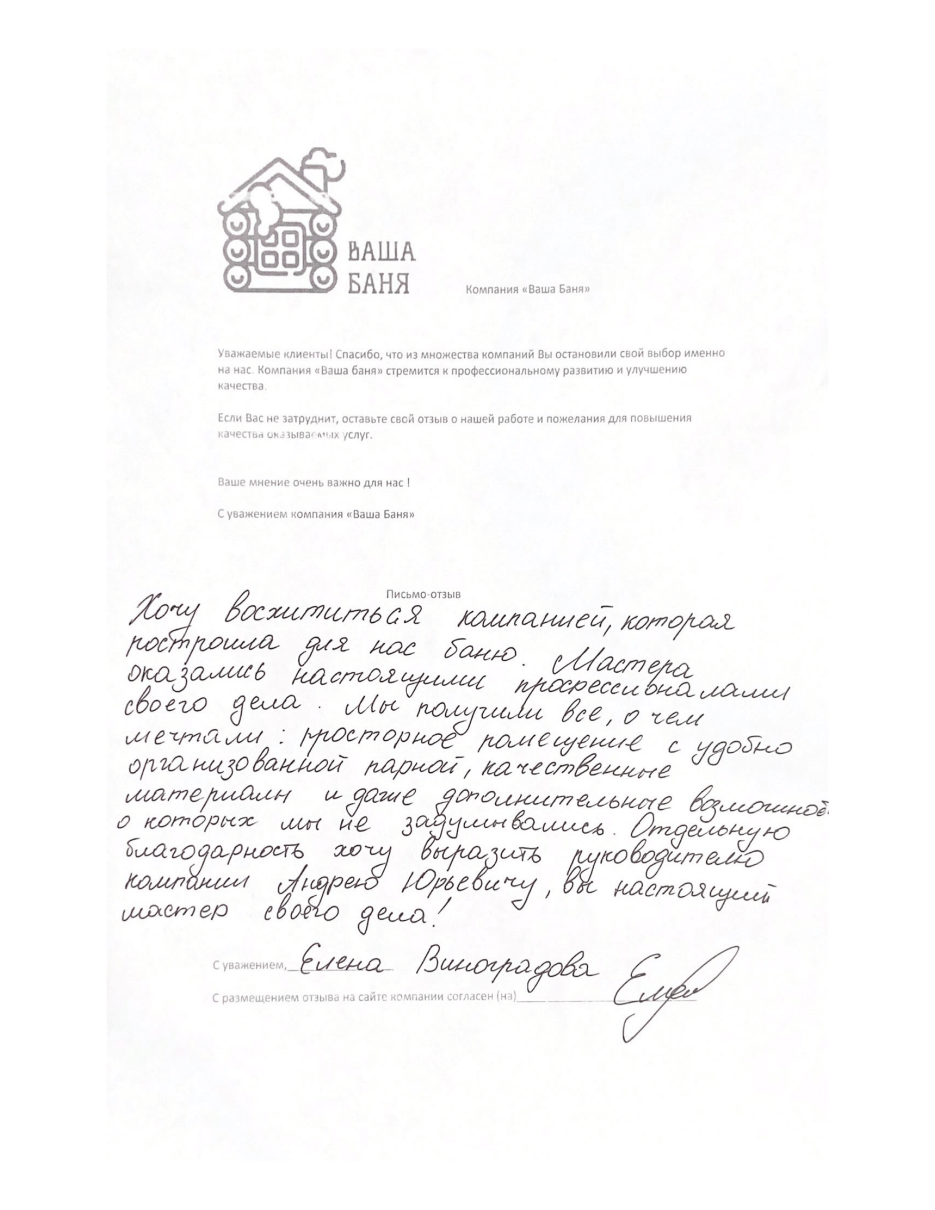 ВАША
БАНЯ
Компания «Ваша Баня»
Уважаемые клиенты! Спасибо, что из множества компаний Вы остановили свой выбор именно
на нас. Компания «Ваша баня» стремится к профессиональному развитию и улучшению
качества.
Если Вас не затруднит, оставьте свой отзыв о нашей работе и пожелания для повышения
качества оказываемых услуг.
Ваше мнение очень важно для нас !
С уважением компания «Ваша Баня»
Письмо-отзыв
Хочу восхититься компанией, которая
построила для нас баню. Мастера
оказались настоящими профессионалами
своего дела. Мы получили все, о чем
мечтали: просторное помещение с удобно
организованной парной, качественные
материалы и даже дополнительные
о которых мы не задумывались. Отдельную
благодарность хочу выразить руководителю
компании Андрею Юрьевичу, вы настоящий
мастер своего дела!
С уважением, Елена Виноградова
С размещением отзыва на сайте компании согласен (на)